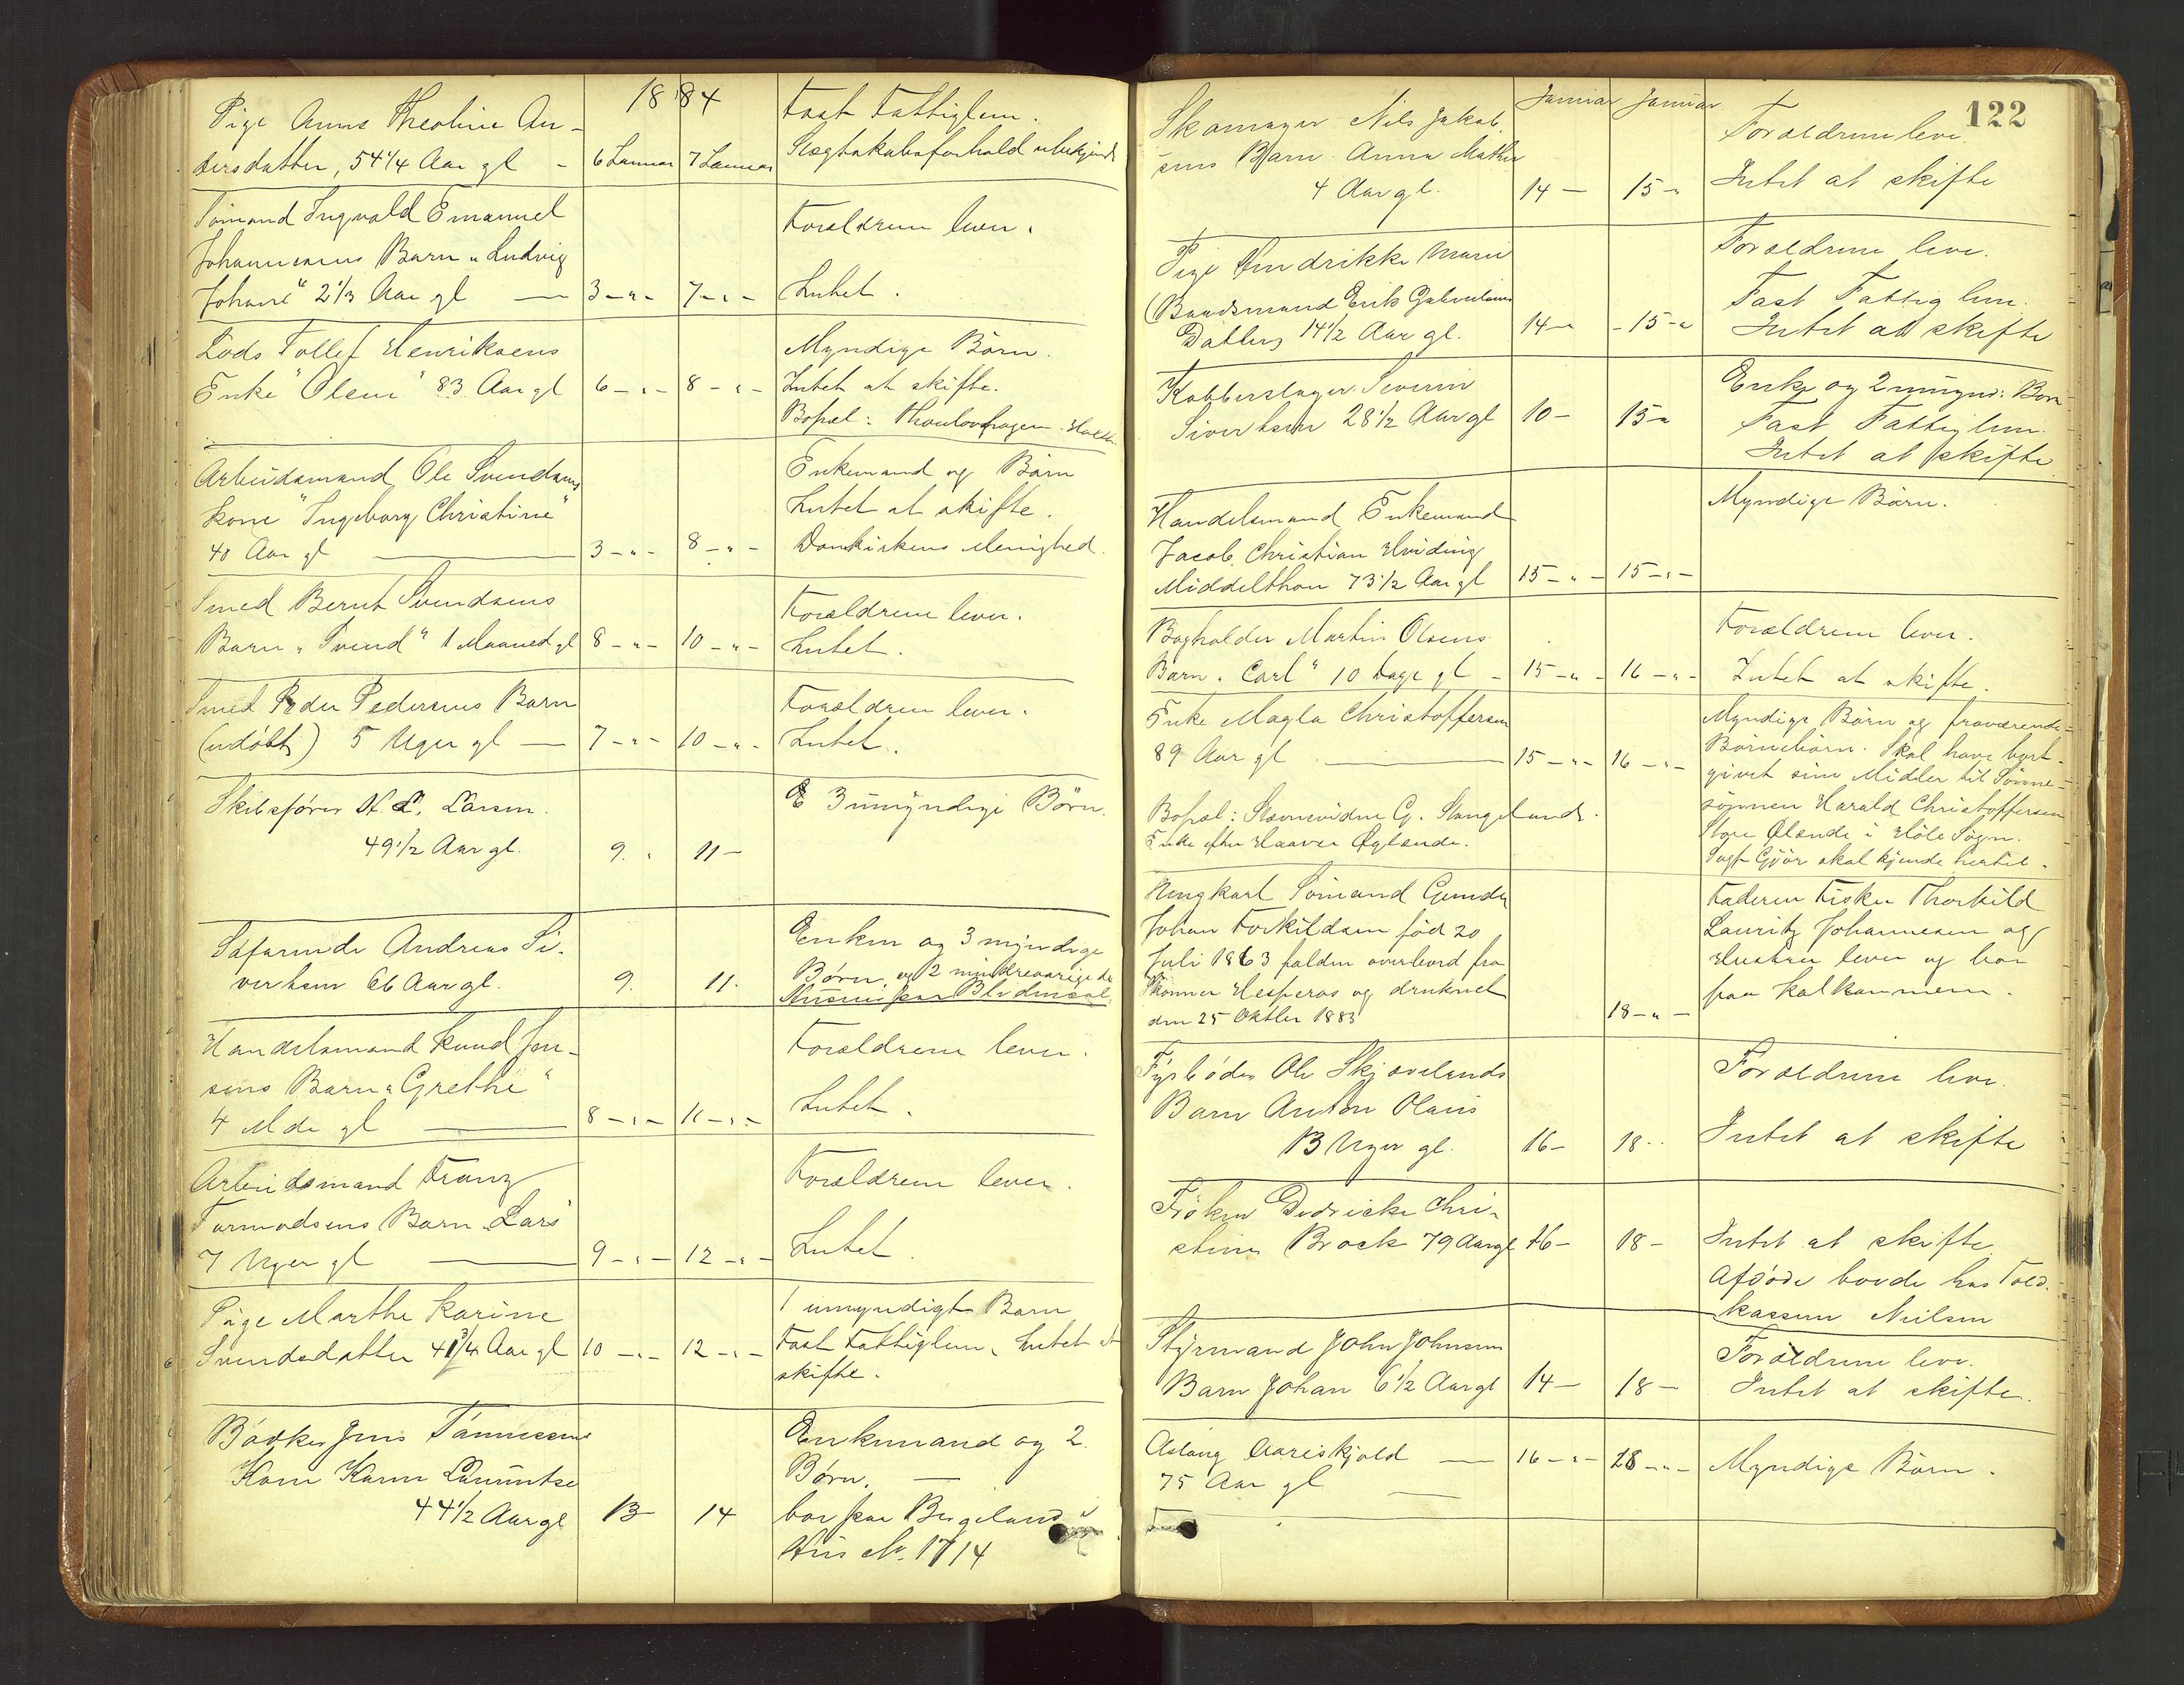 1884
Pige Anne Theoline An-
dersdatter, 54 1/4 Aar gl - 6 Januar 7 Januar
Fast Fattiglem.
Slægtskabsforhold ubekjendt
Sømand Ingvald Emanuel
Johannesens Barn "Ludvig
Johan" 2 1/3 Aar gl — 3 - " - 7 - " -
Forældrene lever.
Intet.
Lods Tollef Henriksens
Enke "Olene" 83 Aar gl 6 - " - 8 - " -
Myndige Børn.
Intet at skifte.
Bopæl:
Arbeidsmand Ole Svendsens
Kone "Ingeborg Christine"
40 Aar gl — 3 - " - 8 - " -
Enkemand og Børn
Intet at skifte.
Domkirkens Menighed.
Smed Bernt Svendsens
Barn "Svend" 1 Maaned gl 8 - " - 10 - " -
Forældrene lever.
Intet.
Smed Peder Pedersens Barn
(udøbt) 5 Uger gl — 7 - " - 10 - " -
Forældrene lever.
Intet.
Skibsfører N. L. Larsen.
49 1/2 Aar gl. 9. " 11 -
3 umyndige Børn.
Søfarende Andreas Si-
vertsen 66 Aar gl. 9. 11.
Enken og 3 myndige
Børn, og 2 mindreaarige do
Huset paa Blidensol
Handelsmand Knud Jen-
sens Barn "Grethe"
4 Mdr gl — 8 - " - 11 - " -
Forældrene lever.
Intet.
Arbeidsmand Franz
Tormodsens Barn "Lars"
7 Uger gl — 9 - " - 12 - " -
Forældrene lever.
Intet.
Pige Marthe Karine
Svendsdatter 41 3/4 Aar gl 10 - " - 12 - " -
1 umyndigt Barn
Fast Fattiglem. Intet at
skifte.
Bødker Jens Tønnesens
Kone Karen Lauritse
44 1/2 Aar gl 13 14
Enkemand og 2
Børn. —
bor paa Bergeland i
Hus No. 1714
122
Januar Januar
Skomager Nils Jakob-
sens Barn Anna Mathe
4 Aar gl. 14 — 15 - "
Forældrene leve.
Intet at skifte
Pige Hendrikke Marie
(Baadsmand Erik Gabrielsens
Datter) 14 1/2 Aar gl. 14 - " - 15 - "
Forældrene leve.
Fast Fattiglem.
Intet at skifte
Kobberslager Severin
Sivertsen 28 1/2 Aar gl 10 - 15 - "
Enke og 2 umynd: Børn
Fast Fattiglem.
Intet at skifte
Handelsmand Enkemand
Jacob Christian Hviding
Middelthon 73 1/2 Aar gl 15 - " - 15 - " -
Myndige Børn.
Bogholder Martin Olsens
Barn "Carl" 10 Dage gl - 15 - " - 16 - " -
Forældrene lever.
Intet at skifte.
Enke Magla Christoffersen
89 Aar gl — 15 - " - 16 - " -
Bopæl: Stævnevidne G. Stangelands.
Enke efter Haaver Øglænde.
Myndige Børn og fraværende
Børnebørn. Skal have bort-
givet sine Midler til Sønne-
sønnen Harald Christoffersen
Store Ølænde i Høle Sogn.
skal kjende hertil.
Ungkarl Sømand Gunder
Johan Torkildsen fød 20
Juli 1863 falden overbord fra
Skonner Hesperos og druknet
den 25 Oktber 1883
18 - " -
Faderen Fisker Thorkild
Lauritz Johannesen og
Hustru lever og bor
paa Kalhammeren.
Fyrbøder Ole Skjævelands
Barn Anton Olaus
13 Uger gl. 16 - 18 - "
Forældrene leve.
Intet at skifte
Frøken Didricke Chri-
stine Brock 79 Aar gl 16 - 18 -
Intet at skifte
Afdøde boede hos Told-
kasserer Nielsen
Styrmand John Johnsens
Barn Johan 6 1/2 Aar gl 14 — 18 —
Forældrene leve.
Intet at skifte.
Aslaug Aareskjold — 16 - " - 18 - " -
75 Aar gl —
Myndige Børn.